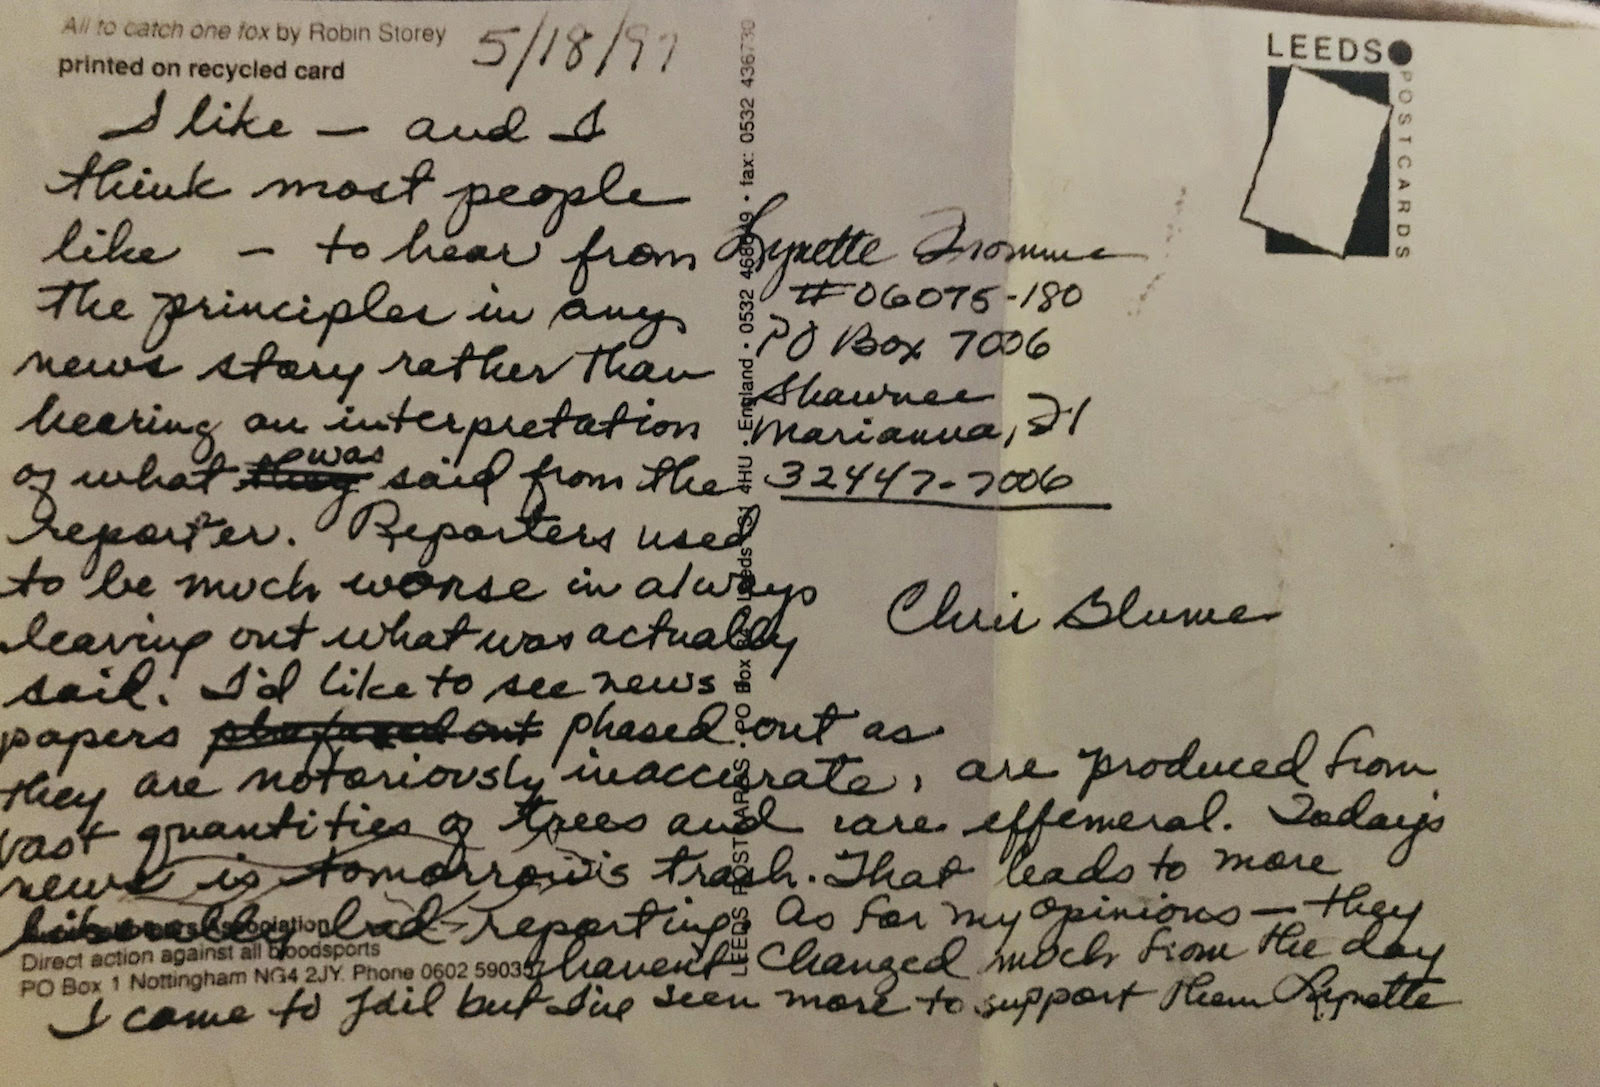 All to catch one fox by Robin Storey
printed on recycled card
5/18/97
I like — and I
think most people
like — to hear from
the principles in any
news story rather than
hearing an interpretation
of what they was said from the
reporter. Reporters used
to be much worse in always
leaving out what was actually
said. I'd like to see news
papers phased out as
they are notoriously inaccurate, are produced from
vast quantities of trees and are effemeral. Todays
news is tomorrow's trash. That leads to more
bad reporting. As for my opinions — they
havent changed much from the day
I came to jail but I've seen more to support them Lynette
Association
Direct action against all bloodsports
PO Box 1 Nottingham NG4 2JY. Phone 0602 59035
LEEDS POSTCARDS · PO Box Leeds 4HU · England · 0532 · fax: 0532 436730
Lynette Fromme
#06075-180
PO Box 7006
Shawnee
Marianna, Fl
32447-7006
Chris Blume
LEEDS
POSTCARDS